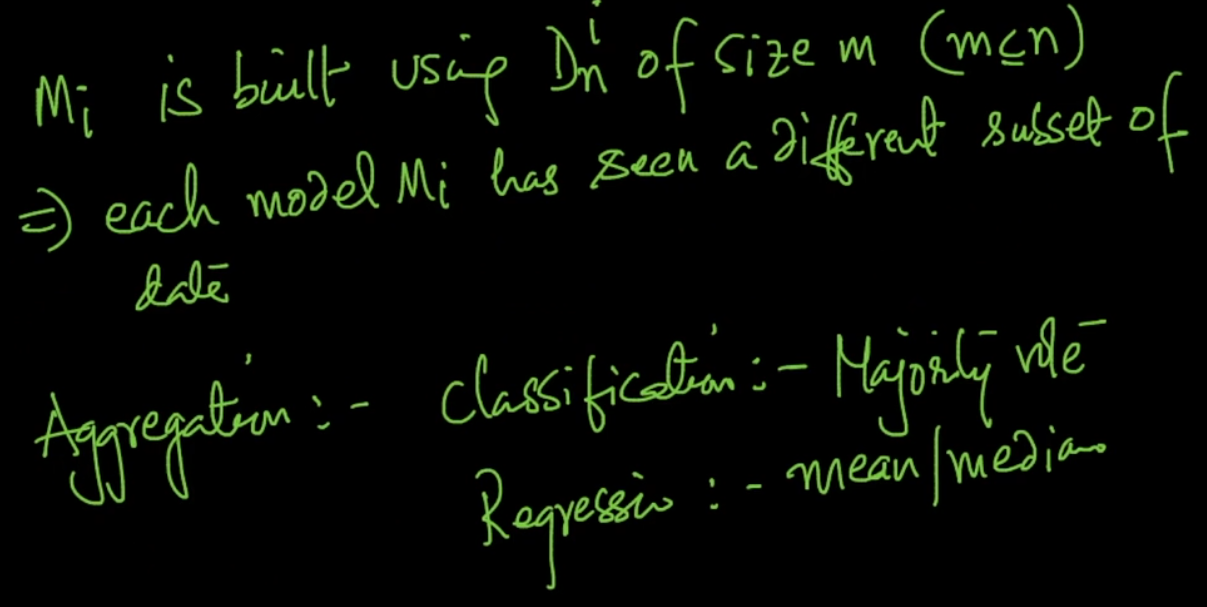 Mi is built using Dn^i of size m (m≤n)
⇒ each model Mi has seen a different subset of
data
Aggregation :- classification :- Majority vote
Regression :- mean/median